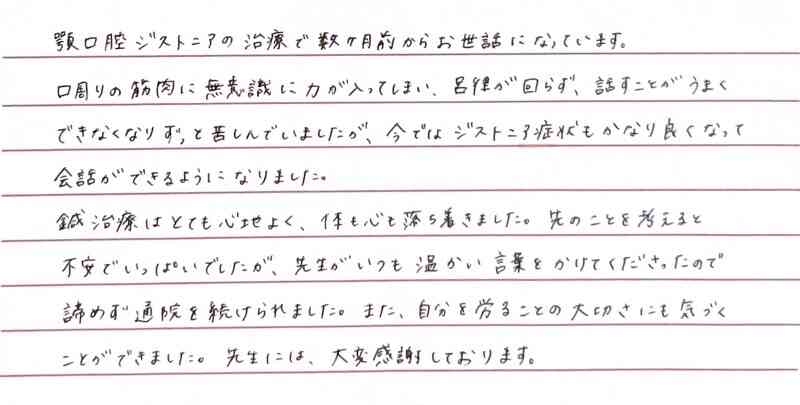 顎口腔ジストニアの治療で数ヶ月前からお世話になっています。
口周りの筋肉に無意識に力が入ってしまい、呂律が回らず、話すことがうまく
できなくなりずっと苦しんでいましたが、今ではジストニア症状もかなり良くなって
会話ができるようになりました。
鍼治療はとても心地よく、体も心も落ち着きました。先のことを考えると
不安でいっぱいでしたが、先生がいつも温かい言葉をかけてくださったので
諦めず通院を続けられました。また、自分を労ることの大切さにも気づく
ことができました。先生には、大変感謝しております。